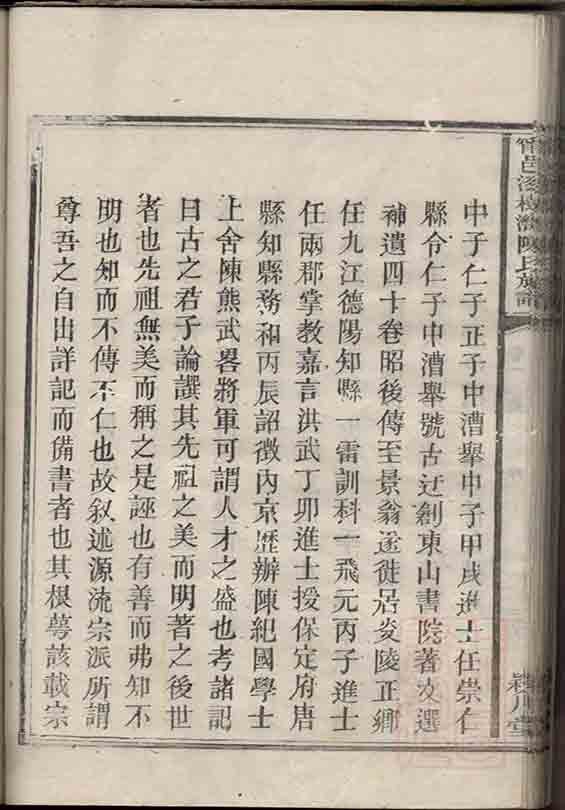 中子仁子正子中漕舉中子甲戌進士任崇仁
縣令仁子中漕舉號古迂創東山書院著文選
補遺四十卷昭後傳至景翁遂徙居炎陵正卿
任九江德陽知縣一雷訓科一飛元丙子進士
任兩郡掌教嘉言洪武丁卯進士授保定府唐
縣知縣務和丙辰詔徵內京歷辦陳紀國學士
上舍陳熊武畧將軍可謂人才之盛也考諸記
曰古之君子論譔其先祖之美而明著之後世
者也先祖無美而稱之是誣也有善而弗知不
明也知而不傳不仁也故叙述源流宗派所謂
尊吾之自出詳記而備書者也其根萼該載宗
陳氏族譜
穎川堂